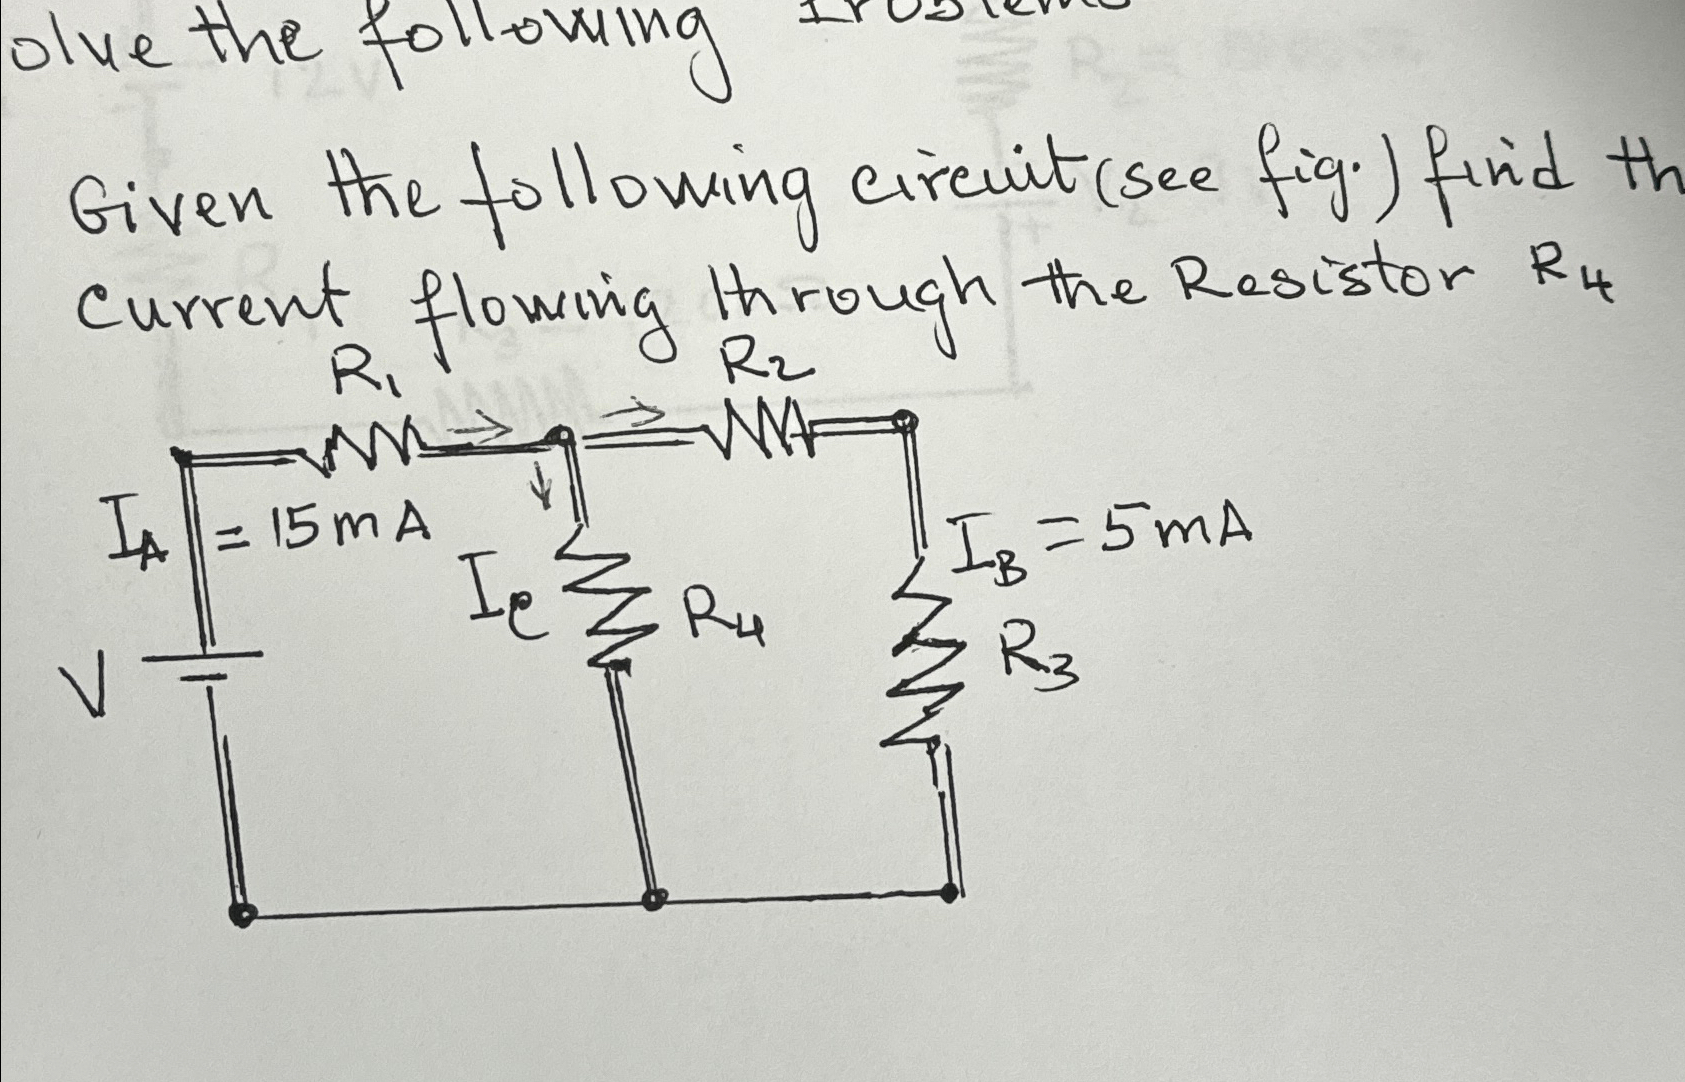 olve the following
Given the following circuit (see fig.) find th
current flowing through the Resistor R4
R1
R2
IA = 15mA
IB = 5mA
IC
R4
R3
V